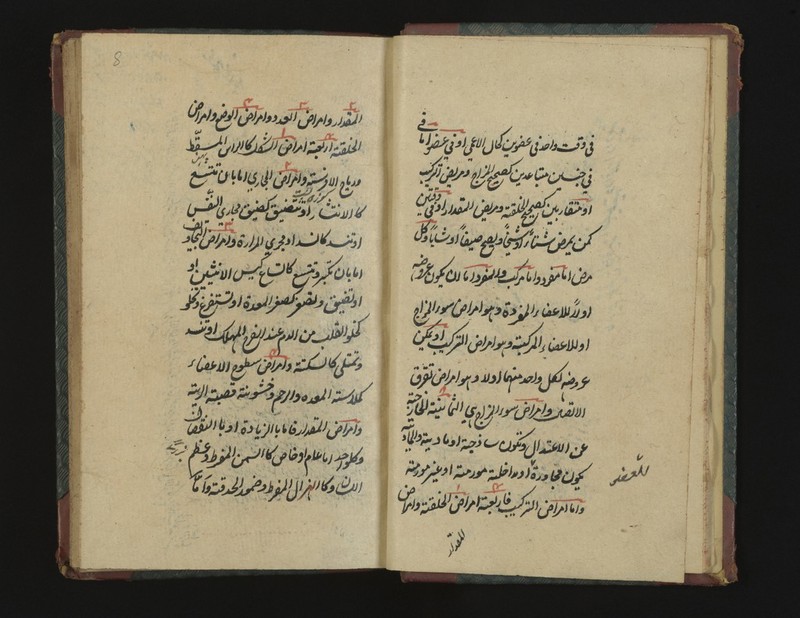 في وقت واحد في عضوين كحال الاعمى او في عضو اما في
في جنسين متباعدين كصحيح المزاج ومريض التركيب
او متقاربين كصحيح الخلقة ومريض المقدار او في وقتين
كمن يمرض شتاءً او شيخا ويصح صيفا او شابا وكل
مرض اما مفرد واما مركب والمفرد اما ان يكون عروضه
اولا للاعضاء المفردة وهو امراض سوء المزاج
او للاعضاء المركبة وهو امراض التركيب او يمكن
عروضه لكل واحد منهما اولا وهو امراض تفرق
الاتصال وامراض سوء المزاج هي الثمانية الخارجة
عن الاعتدال وتكون ساذجة او مادية والمادية
تكون مجاورة او مداخلة مورمة او غير مورمة
واما امراض التركيب فاربعة امراض الخلقة وامراض
المقدار
8
المقدار وامراض العدد وامراض الوضع وامراض
الخلقة اربعة امراض الشكل كالراس المسفط
وامراض المجاري اما بان تتسع
كالانتشار او تضيق كضيق مجاري النفس
او تنسد كانسداد مجرى المرارة وامراض التجاويف
اما بان تكبر وتتسع كاتساع كيس الانثيين او
او تضيق وتصغر كصغر المعدة او تستفرغ وتخلو
كخلو القلب من الدم عند الفرح المهلك او تنسد
وتمتلي كالسكتة وامراض سطوح الاعضاء
كملاسة المعدة والرحم وخشونة قصبة الرية
وامراض المقدار فاما بالزيادة او بالنقصان
وكل واحد اما عام او خاص كالسمن المفرط وعظم
اللسان وكالهزال المفرط وضمور الحدقة واما